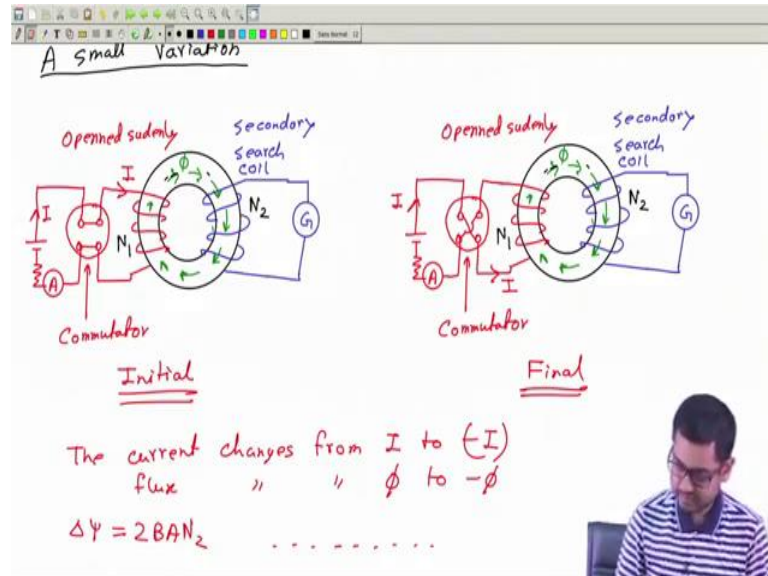 A small Variation
Openned sudenly
Secondory
search
coil
I
I
ϕ
N₁
N₂
G
A
Commutator
Initial
Openned sudenly
Secondory
search
coil
I
ϕ
N₁
N₂
G
A
I
Commutator
Final
The current changes from I to (-I)
flux " " ϕ to -ϕ
ΔΨ = 2BAN₂ . . . . . . . . .